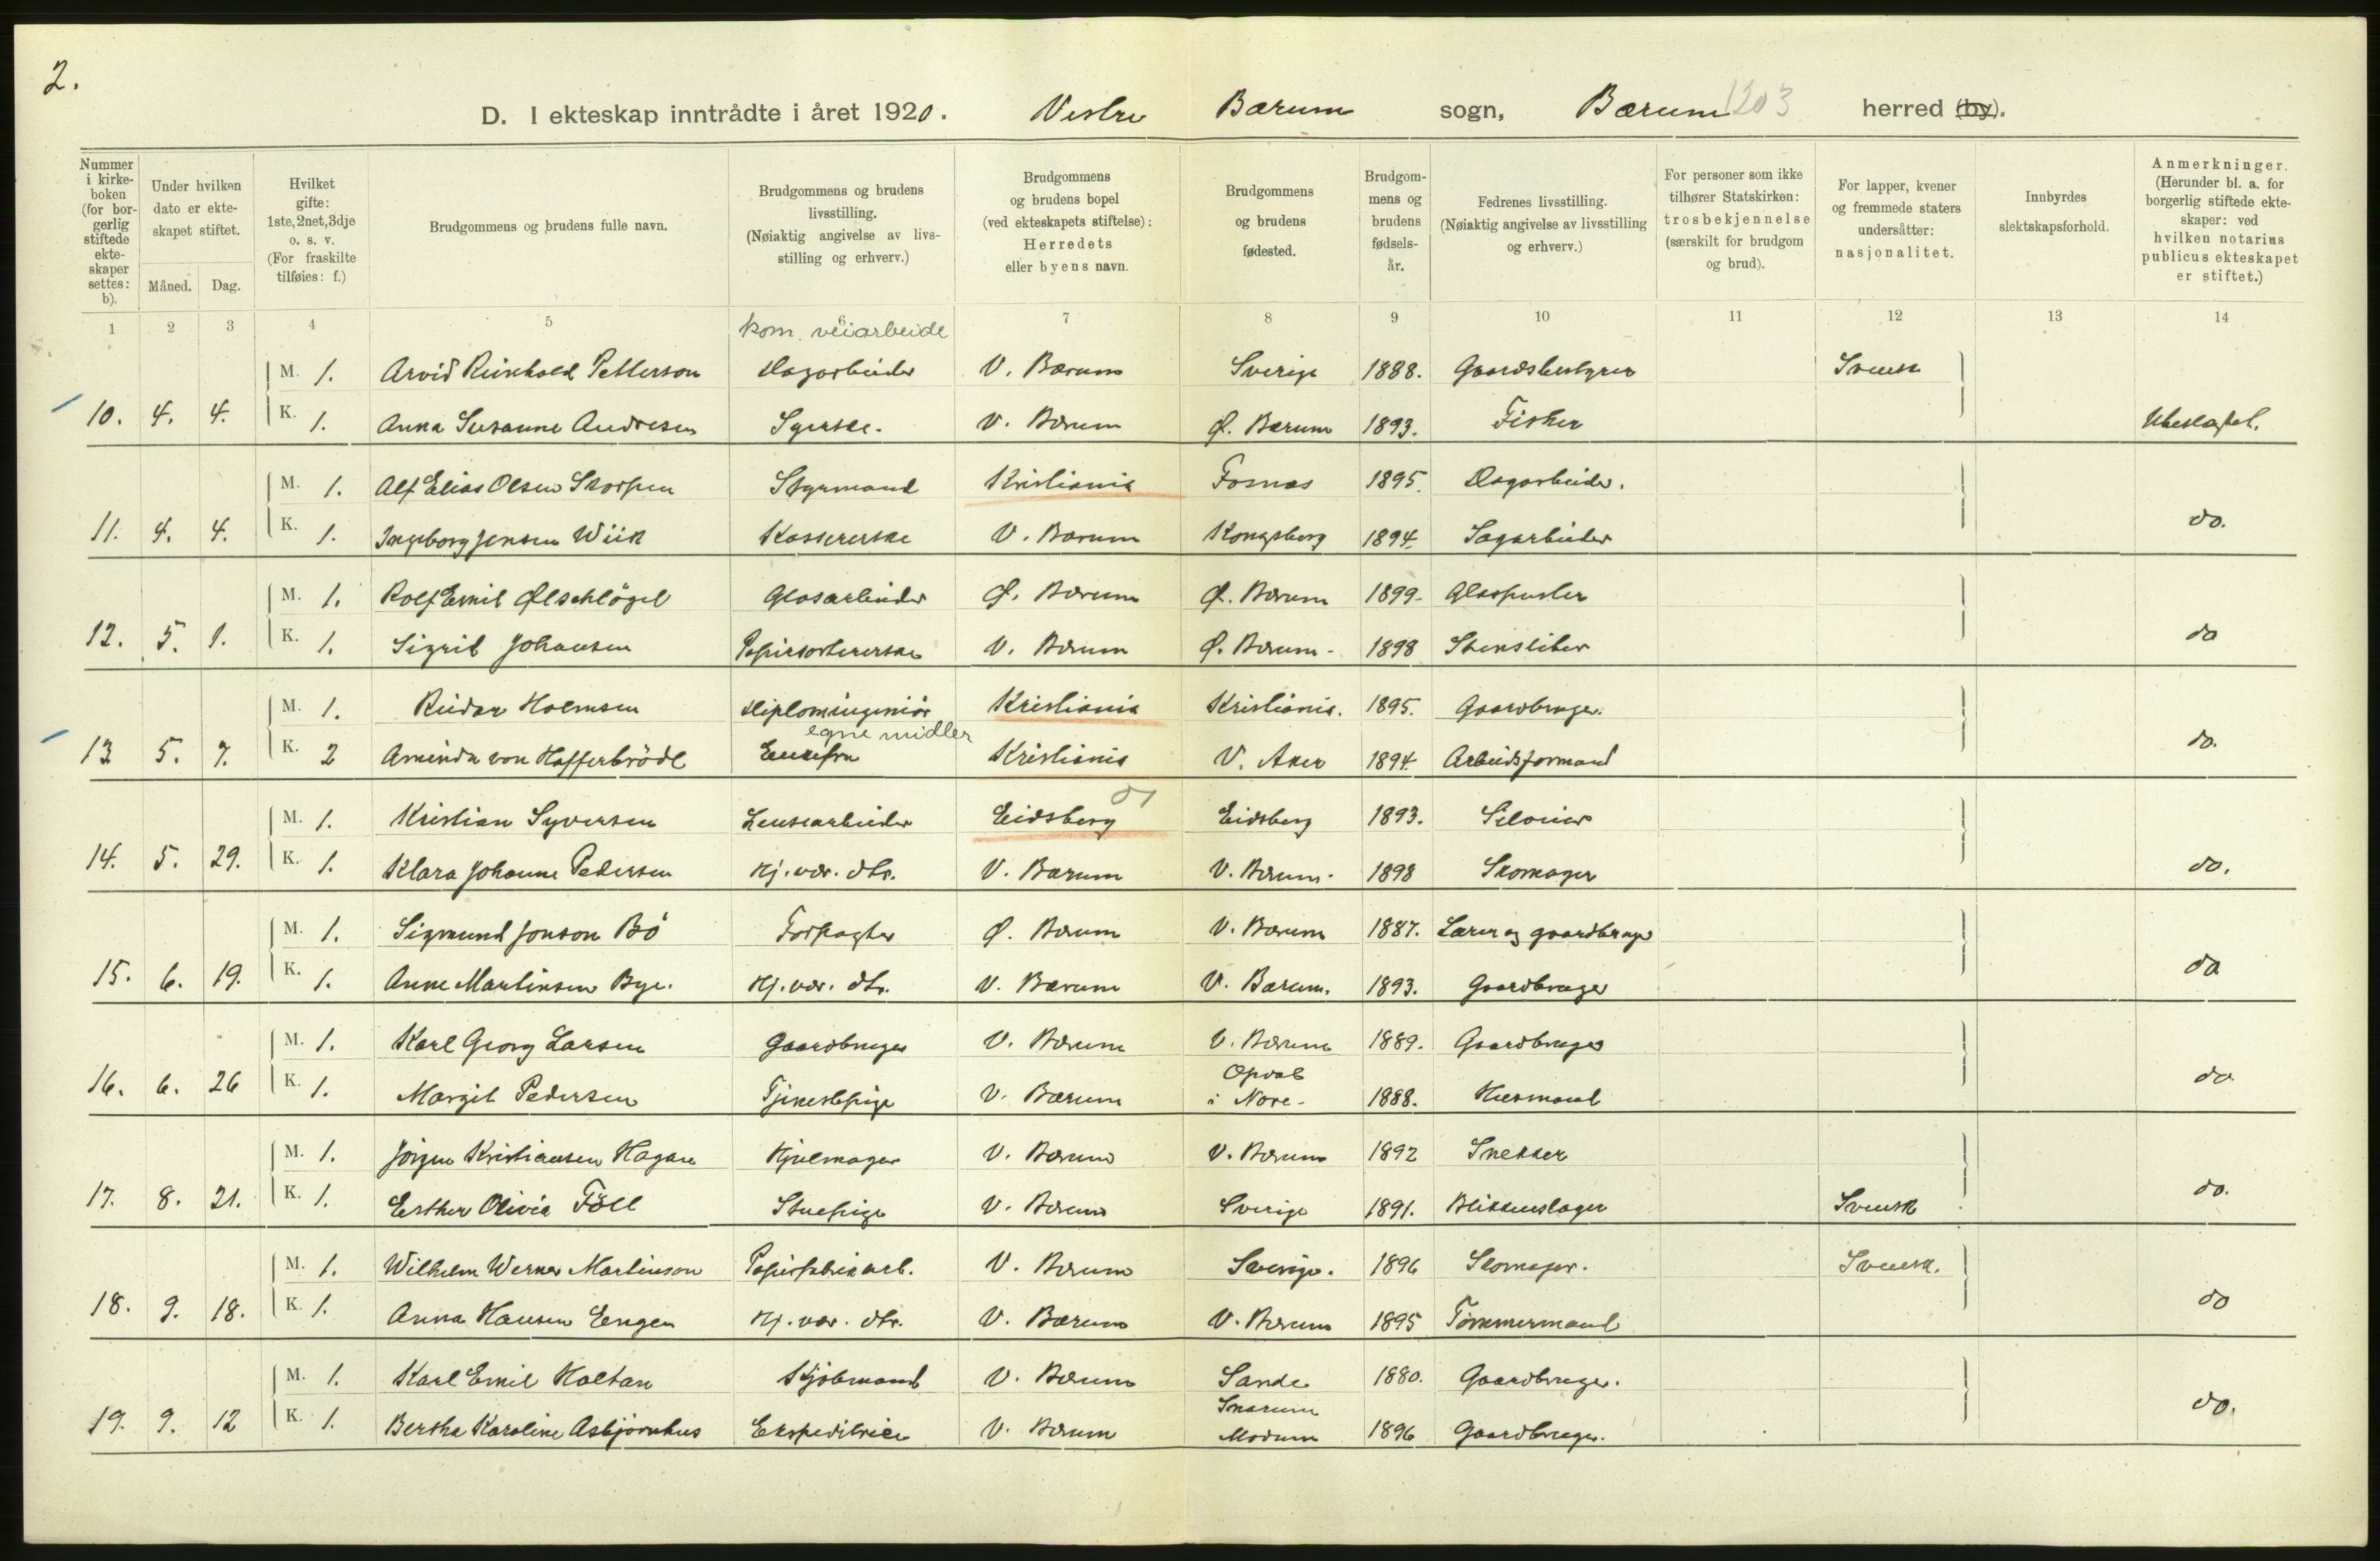 2.
D. I ekteskap inntrådte i året 1920. Vestre Bærum sogn, Bærum 1203 herred (by).
Nummer i kirke- boken (for bor- gerlig stiftede ekte- skaper settes: b).
Under hvilken dato er ekte- skapet stiftet.
Måned. Dag.
Hvilket gifte: 1ste, 2net, 3dje o. s. v. (For fraskilte tilføies: f.)
Brudgommens og brudens fulle navn.
Brudgommens og brudens livsstilling. (Nøiaktig angivelse av livs- stilling og erhverv.)
Brudgommens og brudens bopel (ved ekteskapets stiftelse): Herredets eller byens navn.
Brudgommens og brudens fødested.
Brudgom- mens og brudens fødsels- år.
Fedrenes livsstilling. (Nøiaktig angivelse av livsstilling og erhverv.)
For personer som ikke tilhører Statskirken: trosbekjennelse (særskilt for brudgom og brud).
For lapper, kvener og fremmede staters undersåtter: nasjonalitet.
Innbyrdes slektskapsforhold.
Anmerkninger. (Herunder bl. a. for borgerlig stiftede ekte- skaper: ved hvilken notarius publicus ekteskapet er stiftet.)
1 2 3 4 5 6 7 8 9 10 11 12 13 14
kom. veiarbeide
M. 1. Arvid Reinhold Petterson Dagarbeider V. Bærum Sverige 1888. Gaardsbestyrer Svensk
10. 4. 4. K. 1. Anna Susanne Andresen Syerske. V. Bærum Ø. Bærum 1893. Fisker Ubeslægtet.
M. 1. Alf Elias Olsen Skorpen Styrmand Kristiania Fosnæs 1895. Dagarbeider.
11. 4. 4. K. 1. Ingeborg Jensen Wiik Kassererske V. Bærum Kongsberg 1894. Sagarbeider do.
M. 1. Rolf Emil Ølschlögel Glasarbeider Ø. Bærum Ø. Bærum 1899. Glaspuster
12. 5. 1. K. 1. Sigrid Johansen Papirsortererske V. Bærum Ø. Bærum - 1898 Stensliber do
M. 1. Reidar Holmsen Diplomingeniör Kristiania Kristiania. 1895. Gaardbruger.
egne midler
13 5. 7. K. 2 Aminda von Hafferbrödl Enkefru Kristiania V. Aker 1894. Arbeidsformand do.
01
M. 1. Kristian Syversen Lensearbeider Eidsberg Eidsberg 1893.
14. 5. 29. K. 1. Klara Johanne Pedersen Hj. vær. dtr. V. Bærum V. Bærum. 1898 Skomager do.
M. 1. Sigmund Jonson Bö Forpagter Ø. Bærum V. Bærum 1887. Lærer og gaardbruger
15. 6. 19. K. 1. Anne Martinsen Bye. Hj. vær. dtr. V. Bærum V. Bærum. 1893. Gaardbruger do
M. 1. Karl Georg Larsen Gaardbruger V. Bærum V. Bærum 1889. Gaardbruger
Opdal
16. 6. 26 K. 1. Margit Pedersen Tjenestepige V. Bærum i Nore - 1888. Husmand do
M. 1. Jörgen Kristiansen Hagan Hjulmager V. Bærum V. Bærum 1892 Snekker
17. 8. 21. K. 1. Esther Olivia Föll Stuepige V. Bærum Sverige 1891. Blikkenslager Svensk do.
M. 1. Wilhelm Werner Martinson Papirfabrikarb. V. Bærum Sverige. 1896 Skomager. Svensk.
18. 9. 18. K. 1. Anna Hansen Engen Hj. vær. dtr. V. Bærum V. Bærum 1895 Tömmermand do
M. 1. Karl Emil Holtan Kjöbmand V. Bærum Sande 1880. Gaardbruger.
Snarum
19. 9. 12 K. 1. Bertha Karoline Asbjörnhus Ekspeditrice V. Bærum Modum 1896 Gaardbruger. do.